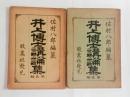 佐村八郎編纂
井上博士講論集
敬業社發兌
佐村八郎編纂
井上博士講論集
敬業社發兌